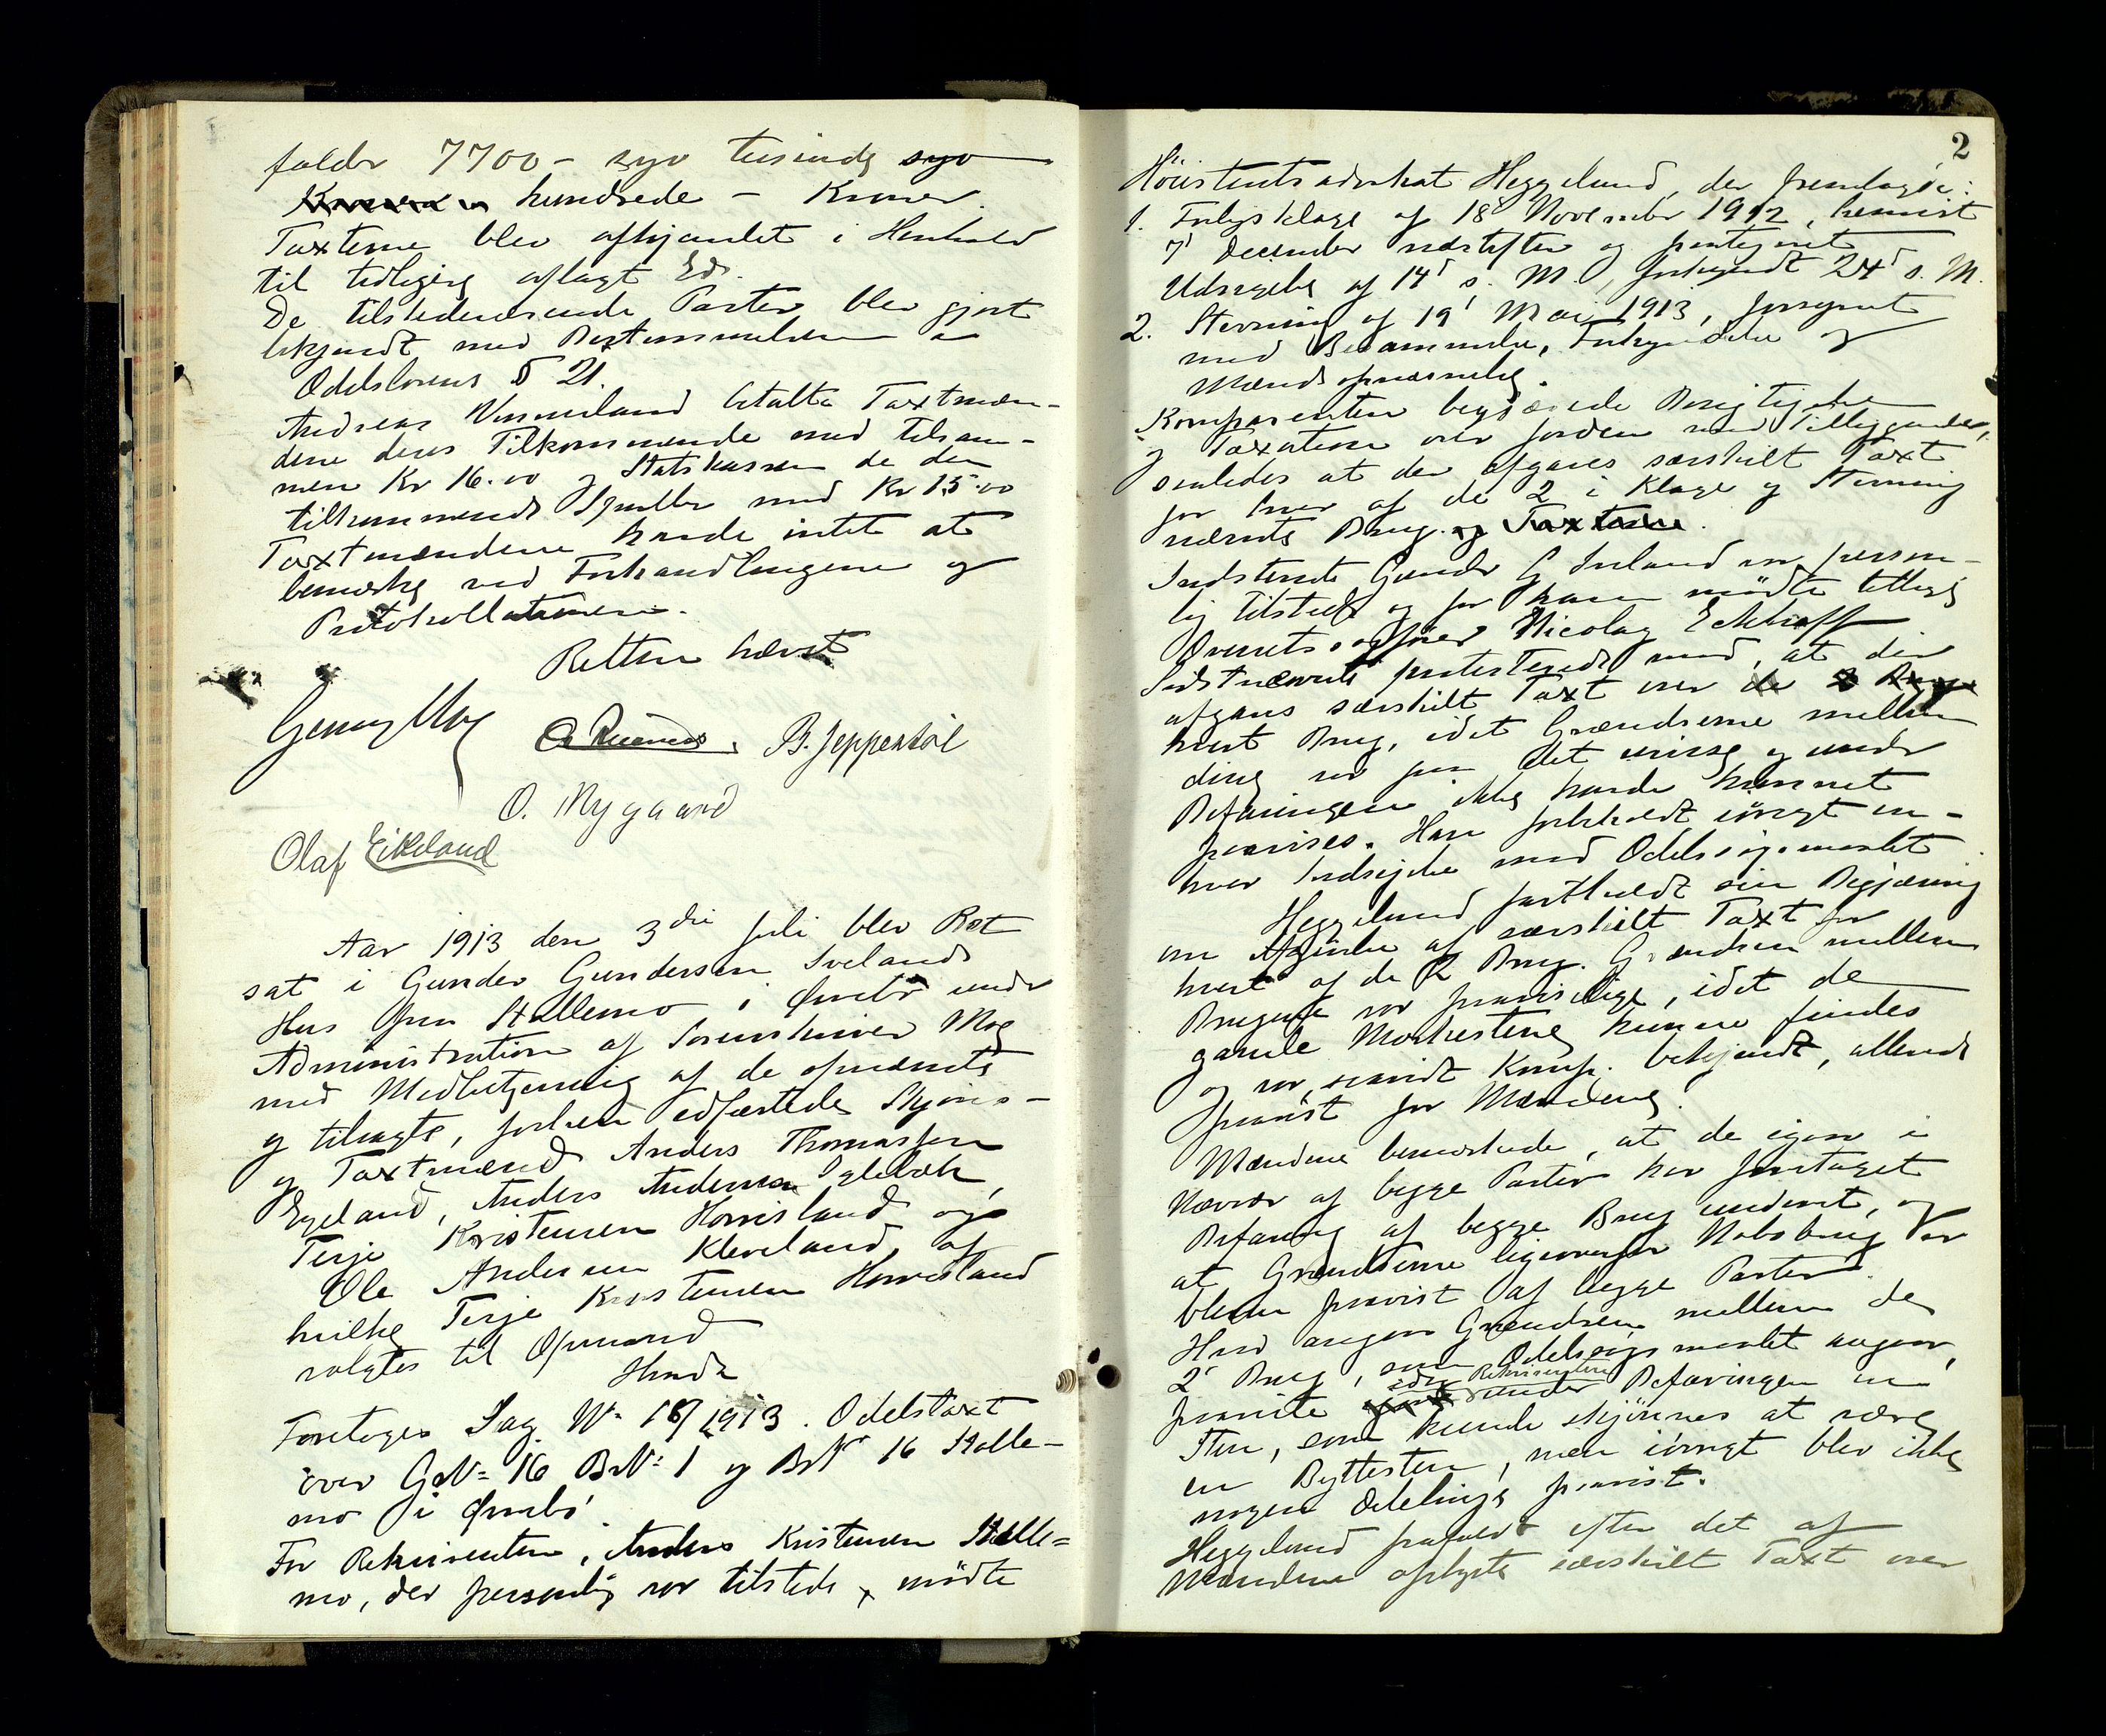 falder 7700 - syv tusinde syv
hundrede - Kroner.
Taxterne blev afhjemlet i Henhold
til tidligere aflagt Ed.
De tilstedeværende Parter blev gjort
bekjendt med Bestemmelsen i
Odelslovens § 21.
Andreas Vennesland betalte Taxtmæn-
dene deres Tilkommende med tilsam-
men Kr 16.00 og Statskassen de den
tilkommende Sportler med Kr 15.00
Taxtmændene havde intet at
bemærke ved Forhandlingerne og
Protokollationen.
Retten hævet
B. Jeppestøl
O. Nygaard
Olaf Eikeland
Aar 1913 den 3die Juli blev Ret
sat i Gunder Gundersen Ivelands
Hus paa Stallemo i Øvrebø under
Administration af Sorenskriver Moe
med Medbetjening af de opnævnte
og tilsagte, forhen edfæstede Skjøns-
og Taxtmænd Anders Thomassen
Egeland, Anders Andersen Iglebæk,
Terje Kristensen Homesland og
Ole Andersen Kleveland, af
hvilke Terje Kristensen Homesland
valgtes til Opmand
Hvorda
Foretoges Sag No 18/1913. Odelstaxt
over GNo 16 BNo 1 og BNo 16 Stalle-
mo i Øvrebø.
For Rekvirenten, Anders Kristensen Stalle=
mo, der personlig var tilstede, mødte
2
Høiesteretsadvokat Heggelund, der fremlagde:
1. Forligsklage af 18 November 1912, henvist
7' December næstefter og paategnet
Udsigelse af 14' s. M., forkyndt 24' s. M.
2. Stevning af 19' Mai 1913, forsynet
med Berammelse, Forkyndelse og
Mændsopnævnelse.
Komparenten begjærede Besigtigelse
og Taxation over Jorden med Tilliggender,
saaledes at der afgaves særskilt Taxt
for hver af de 2 i Klage og Stevning
nævnte Brug.
Indstevnte Gunder G. Iveland var person-
lig tilstede og for ham mødte tillige
Overretssagfører Nicolay Eckhoff
Sidstnævnte protesterede mod, at der
afgaves særskilt Taxt over
hvert Brug, idet Grændserne mellem
disse var paa det uvisse og under
Befaringen ikke havde kunnet
paavises. Han forbeholdt iøvrigt en-
hver Indsigelse mod Odelssøgsmaalet
Heggelund fastholdt sin Begjæring
om Afgivelse af særskilt Taxt for
hvert af de 2 Brug. Grændsen mellem
Brugene var paaviselige, idet de
gamle Markestene kunne findes
og var, saavidt Komp. bekjendt, allerede
paavist for Mændene.
Mændene bemærkede, at de igaar i
Nærvær af begge Parter har foretaget
Befaring af begge Brug underet, og
at Grændserne ligeoverfor Nabobrug var
bleven paavist af begge Parter.
Hvad angaar Grændsen mellem de
2 Brug, som Odelssøgsmaalet angaar,
paaviste Rekvirenten under Befaringen en
Sten, som kunde skjønnes at være
en Byttesten, men iøvrigt blev ikke
nogen Delelinje paavist.
Heggelund frafaldt efter det af
Mændene oplyste særskilt Taxt over